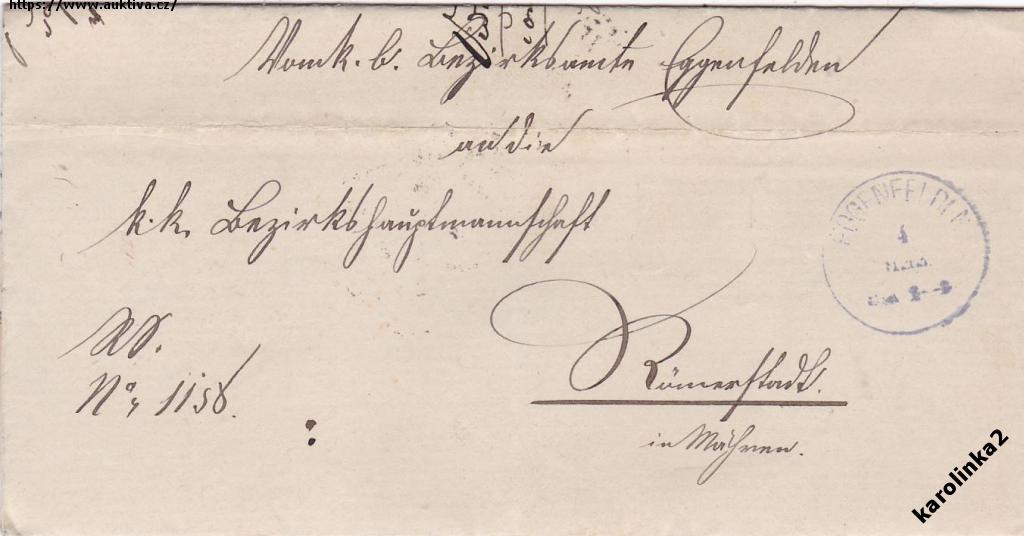 https://www.auktiva.cz/
Vom k. b. Bezirksamte Eggenfelden
an die
k. k. Bezirkshauptmannschaft
EGGENFELDEN
4
RS.
Römerstadt.
No, 1158.
in Mähren.
karolinka2